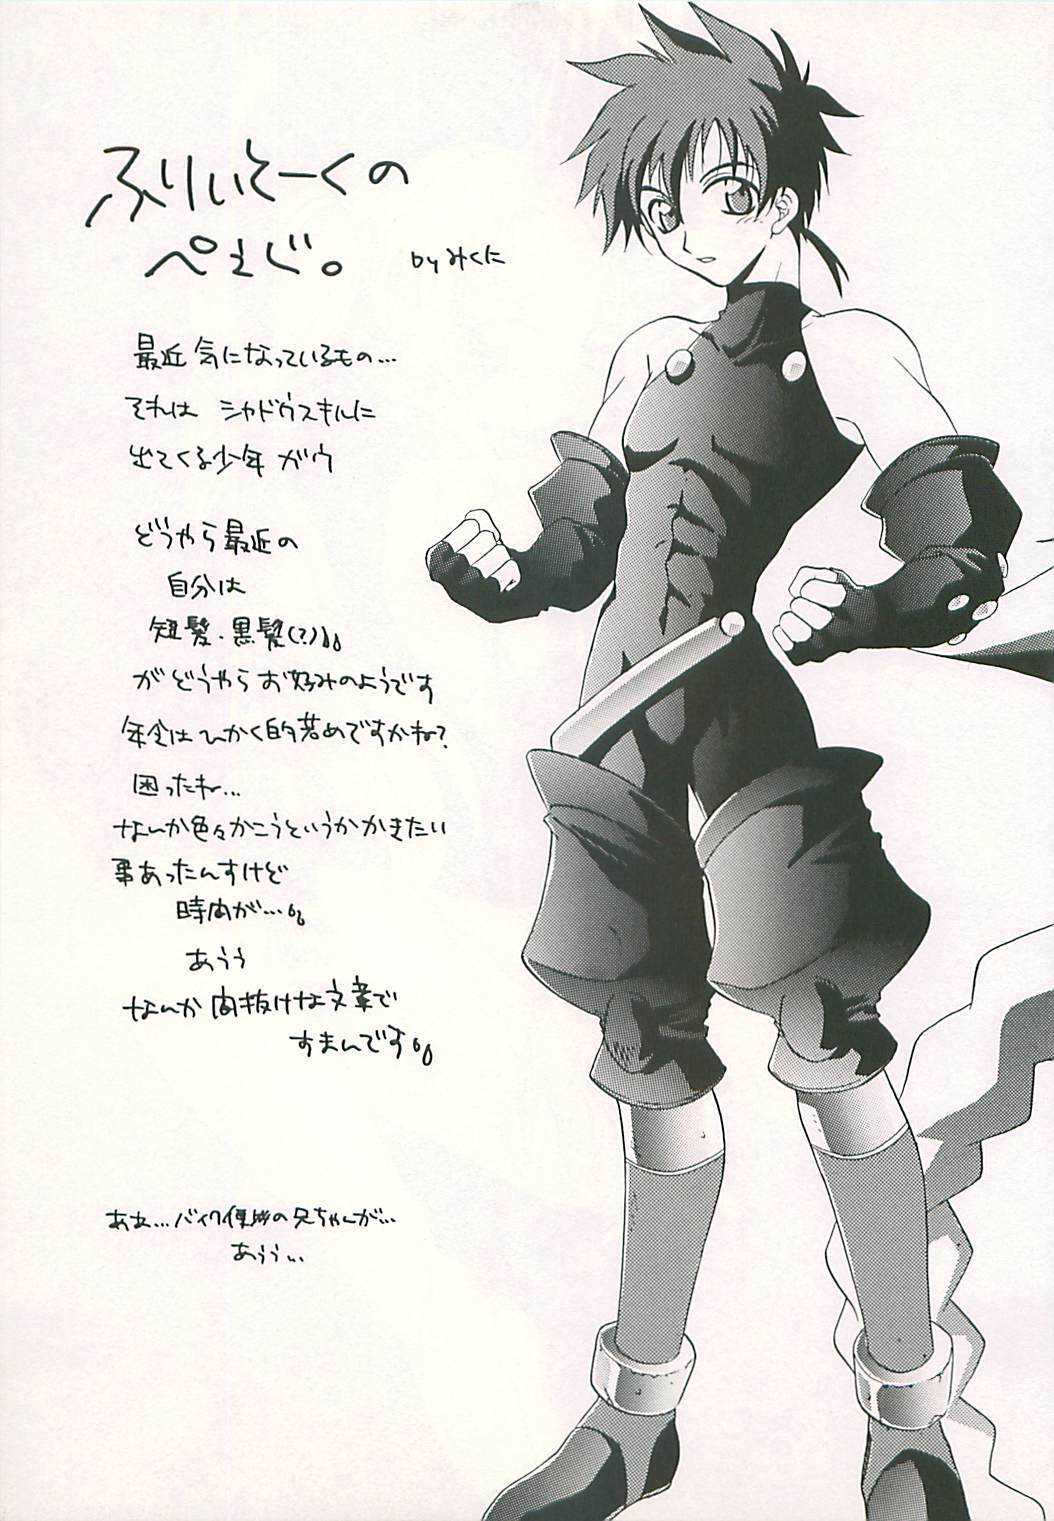 ふりぃとーくの
ぺぇじ。
byみくに
最近気になっているもの…
それは シャドウスキルに
出てくる少年 ガウ
どうやら最近の
自分は
短髪・黒髪(?)
がどうやらお好みのようです
年令はひかく的若めですかね?
困ったね…
なんか色々かこうというかかきたい
事あったんすけど
時間が…。
あうぅ
なんか間抜けな文章で
すまんです。
あぁ…バイク便の兄ちゃんが…
あうぅ…